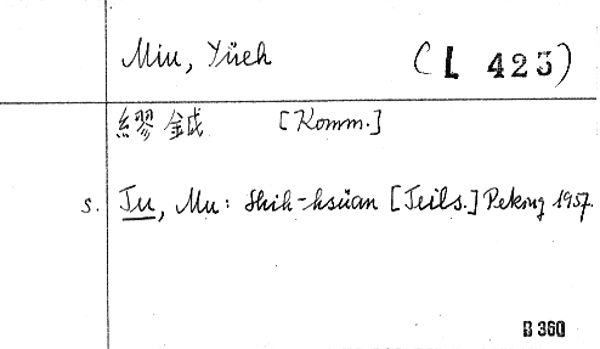 Miu, Yüeh (L 423)
繆鉞 [Komm.]
s. Tu, Mu: Shih-hsüan [Teils.] Peking 1957.
B 360